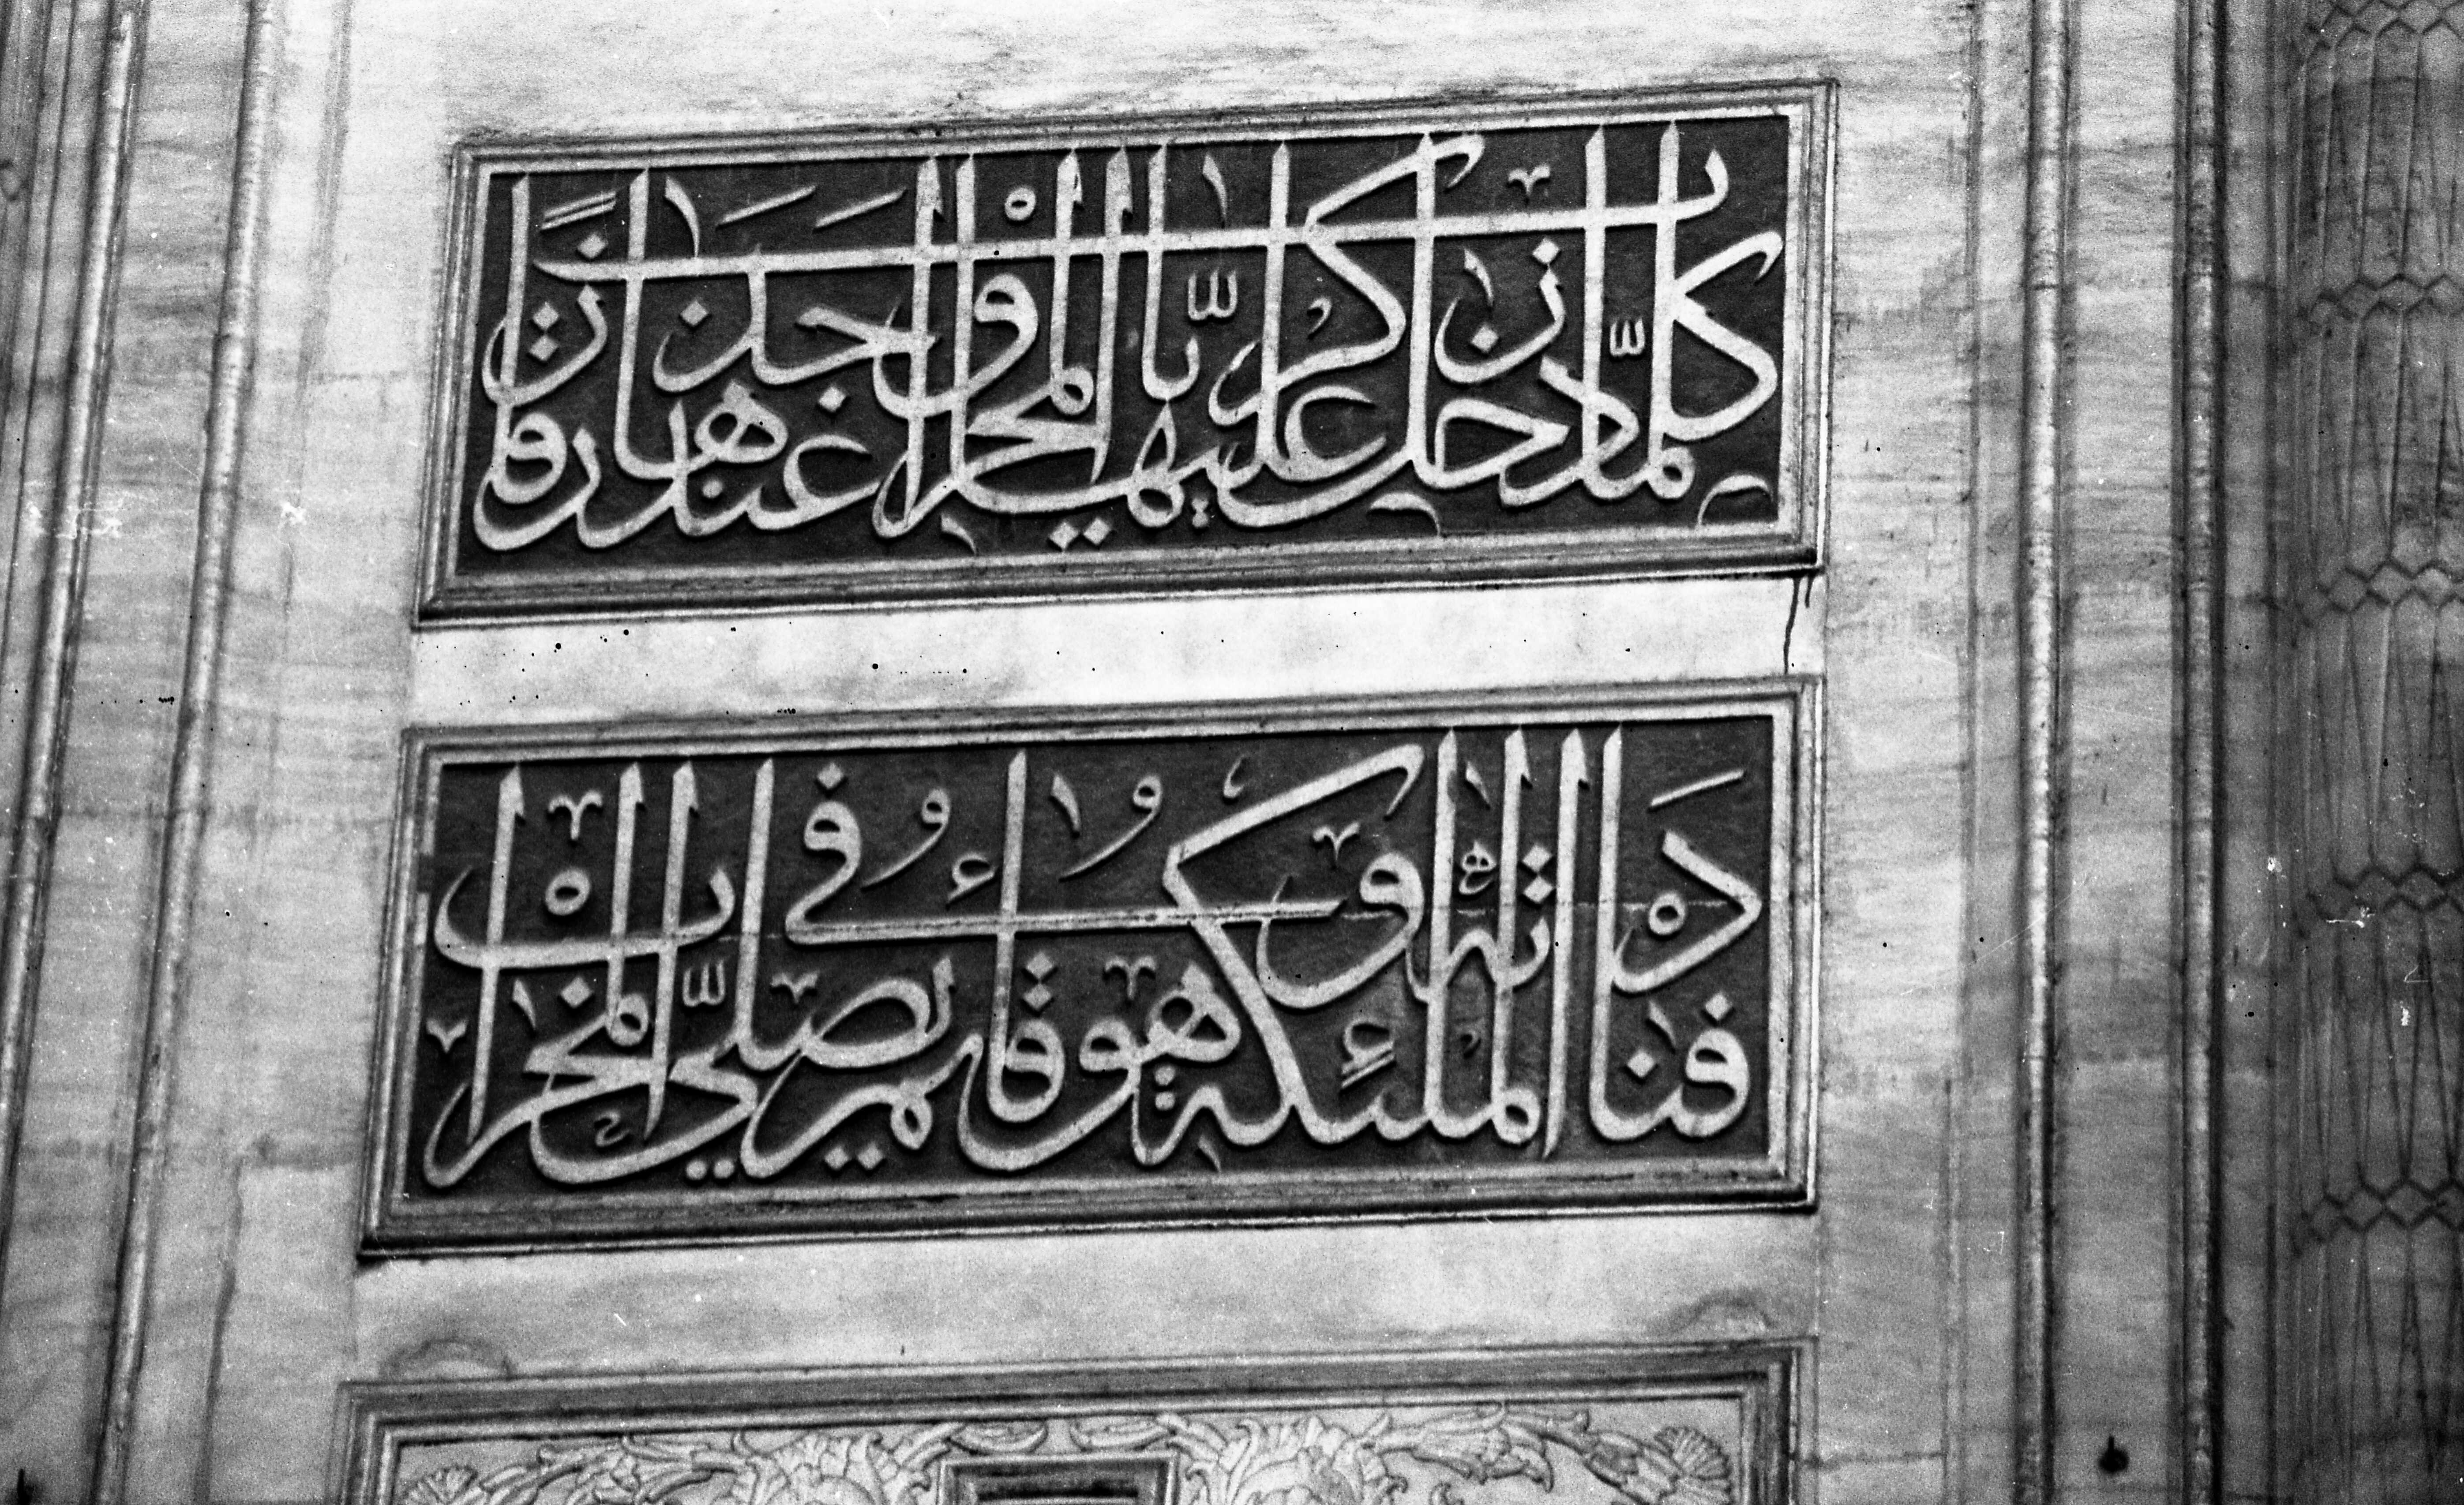 كلما دخل عليها زكريا المحراب وجد عندها رزقا
فنادته الملئكة وهو قائم يصلي في المحراب